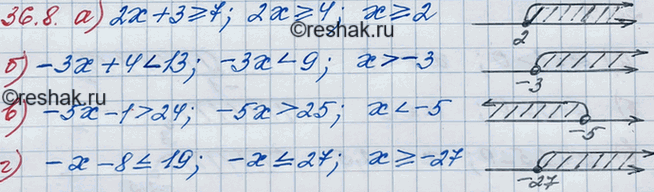 36.8. а) 2x+3≥7; 2x≥4; x≥2
2
©reshak.ru
б) -3x+4<13; -3x<9; x>-3
-3
©reshak.ru
в) -5x-1>24; -5x>25; x<-5
-5
г) -x-8≤19; -x≤27; x≥-27
-27